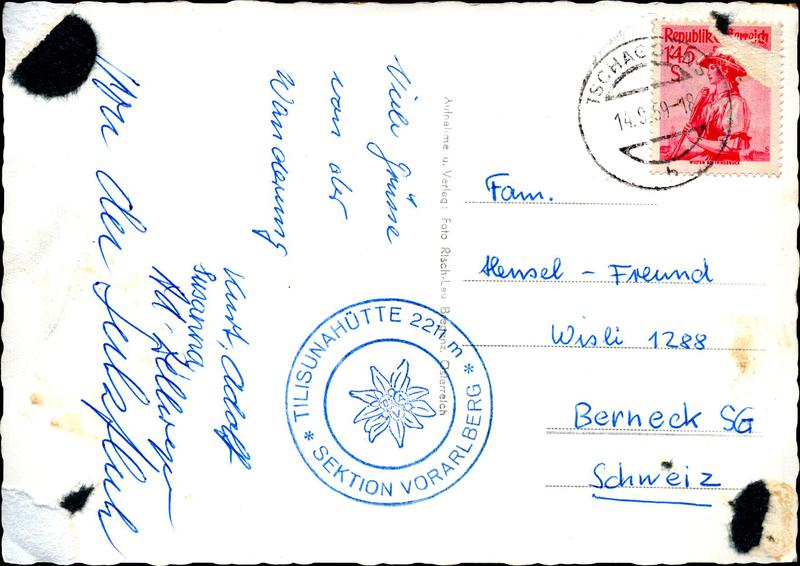 Viele Grüsse
von der
Wanderung
Kurt, Adolf
Susanna
Von der Sulzfluh
Aufnahme u. Verlag: Foto Risch-Lau Bregenz, Österreich
TILISUNAHÜTTE 2211 m
* SEKTION VORARLBERG *
Republik Österreich
145
S
TSCHAG
14.9.59-18
b
Fam.
Hensel - Freund
Wisli 1288
Berneck SG
Schweiz